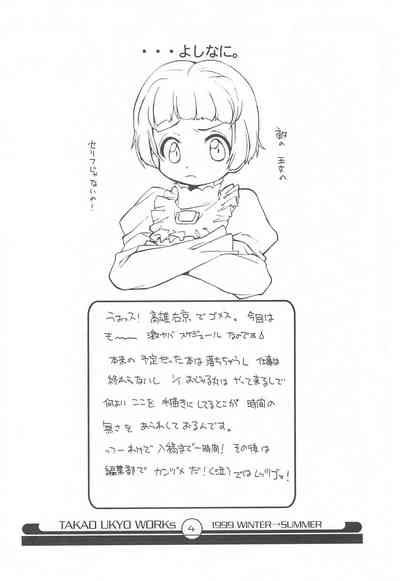 ・・・よしなに。
敵の王女の
セリフじゃないの！
うおッス！高雄右京でゴメス。今日は
も〜〜 激ヤバスケジュールなのです
本来の予定だった本は落ちちゃうし 仕事は
終わらないし おじゃる丸は やって来るしで
何よりここを手描きにしてるとこが時間の
無さをあらわしておるんです。
っつーわけで入稿まで一時間！その後は
編集部でカンヅメだ！（泣）ではレッツゴォ！
TAKAO UKYO WORKs 4 1999 WINTER→SUMMER